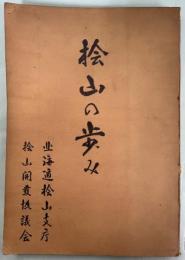 桧山の歩み
北海道桧山支庁
桧山開発協議会